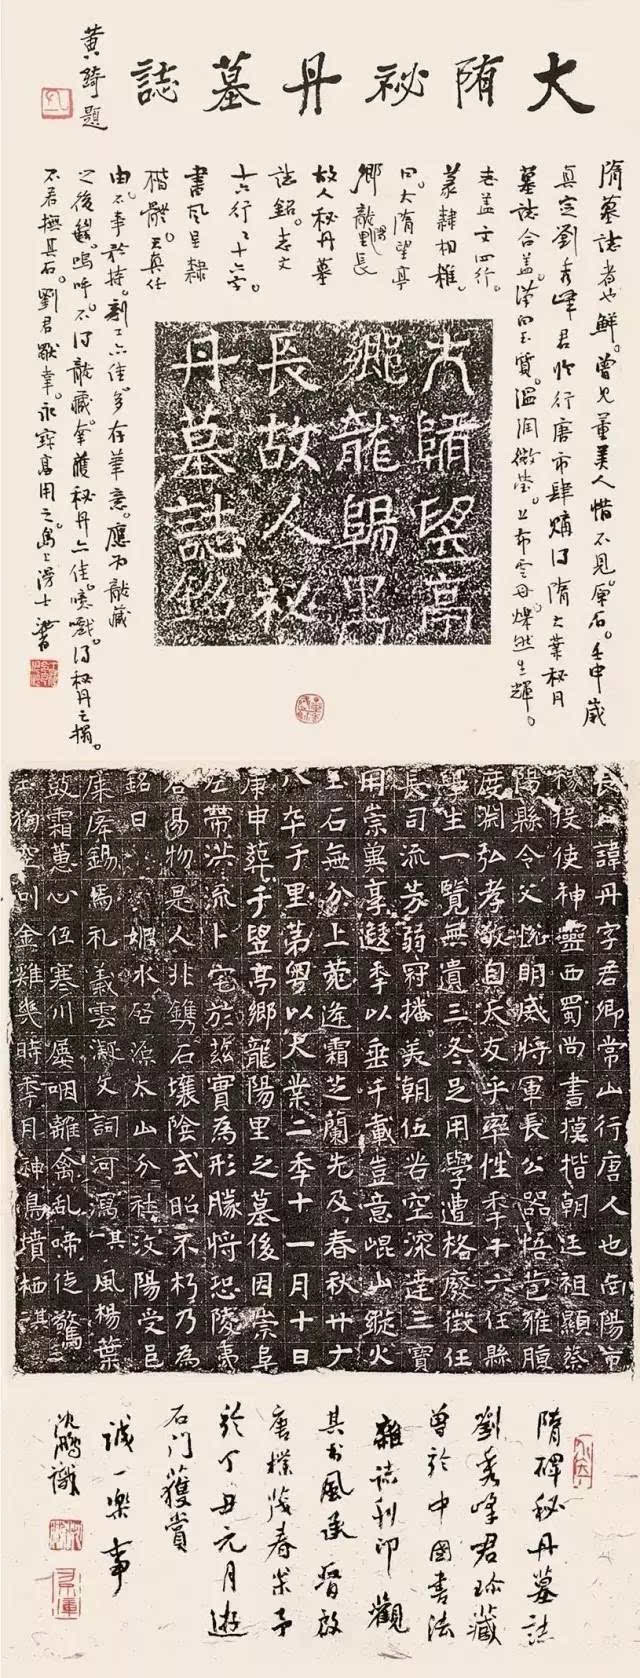 大隋祕丹墓誌
黄綺題
隋墓誌者也鮮。曾見董美人惜不見原石。壬申歲
真定劉秀峰君於行唐市肆購得隋大業秘丹
墓誌合蓋。漢白玉質。溫潤微瑩。上布雲母爍然生輝。
志蓋文四行。
篆隸相雜。
曰。大隋望亭
鄉龍陽里長
故人秘丹墓
誌銘。志文
十六行行十六字。
書風呈隸
楷體。天真任
由。不事矜持。刻工亦佳。多存筆意。應為龍藏
之後。嗚呼。不得龍藏。拿獲秘丹亦佳。噫戲。得秘丹之搨。
不若撫其石。劉君永寶用之。
大隋望亭
鄉龍陽里
長故人祕
丹墓誌銘
長諱丹字君卿常山行唐人也向陽市
役使神靈西蜀尚書摸楷朝廷祖顯蔡
陽縣令父悅明威將軍長公器悟苞雅腹
度淵弘孝敬自天友乎率性季十六任縣
學生一覽無遺三冬足用學遭格廢徵任
長司流芳弱冠播美朝伍空深達三寶
用崇冀享遐季以垂千載豈意崐山縱火
玉石無分上菀逢霜芝蘭先及春秋廿六
八卒于里第粵以大業二季十一月十日
庚申葬于望亭鄉龍陽里之墓後因崇阜
左帶洪流卜宅於茲實為形勝將恐陵夷
谷易物是人非鐫石壤陰式昭不朽乃為
銘曰媯水啓源太山分社汶陽受邑
康錫馬礼義雲凝文詞河瀉其風楊葉
霜蕙心伍寒川屢咽離禽乱啼徒驚
狗空叫金雞幾時季月神鳥墳栖其
隋碑秘丹墓誌
劉秀峰君珍藏
曾於中國書法
雜誌刊印觀
其書風承晉啟
唐樸茂春米予
於丁丑元月遊
石门獲賞
誠一樂事
沈鵬識